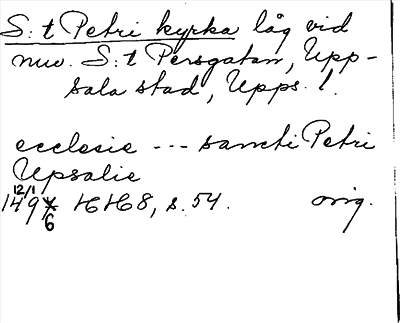 S:t Petri kyrka låg vid
nuv. S:t Persgatan, Upp-
sala stad, Upps. l.
ecclesie --- sancti Petri
Upsalie
12/1
149 HH 8, s. 54. orig.
6